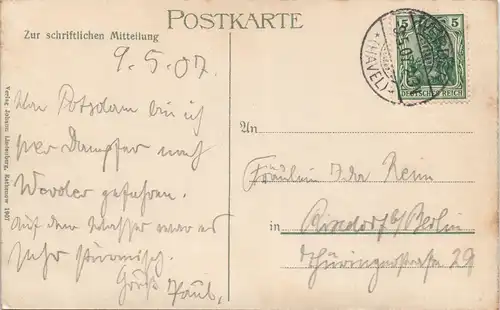 POSTKARTE
Zur schriftlichen Mitteilung
9.5.07.
Von Potsdam bin ich
per Dampfer nach
Werder gefahren.
Auf dem Wasser war es
sehr stürmisch.
Gruß Paul.
Verlag Johann Lindenberg, Rathenow 1907
5 5
DEUTSCHES REICH
(HAVEL)
An
Fräulein Ida Renn
in Rixdorf b/Berlin
Thüringerstraße 29